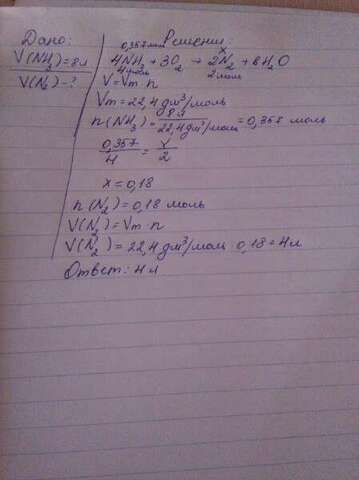 Дано:
V(NH3)=8л
V(N2)-?
Решение:
0,357моль x
4NH3 + 3O2 → 2N2 + 6H2O
4моль 2моль
V=Vm·n
Vm=22,4дм³/моль
n(NH3)=8л/22,4дм³/моль=0,358 моль
0,357/4=x/2
x=0,18
n(N2)=0,18 моль
V(N2)=Vm·n
V(N2)=22,4дм³/моль 0,18=4л
Ответ: 4л